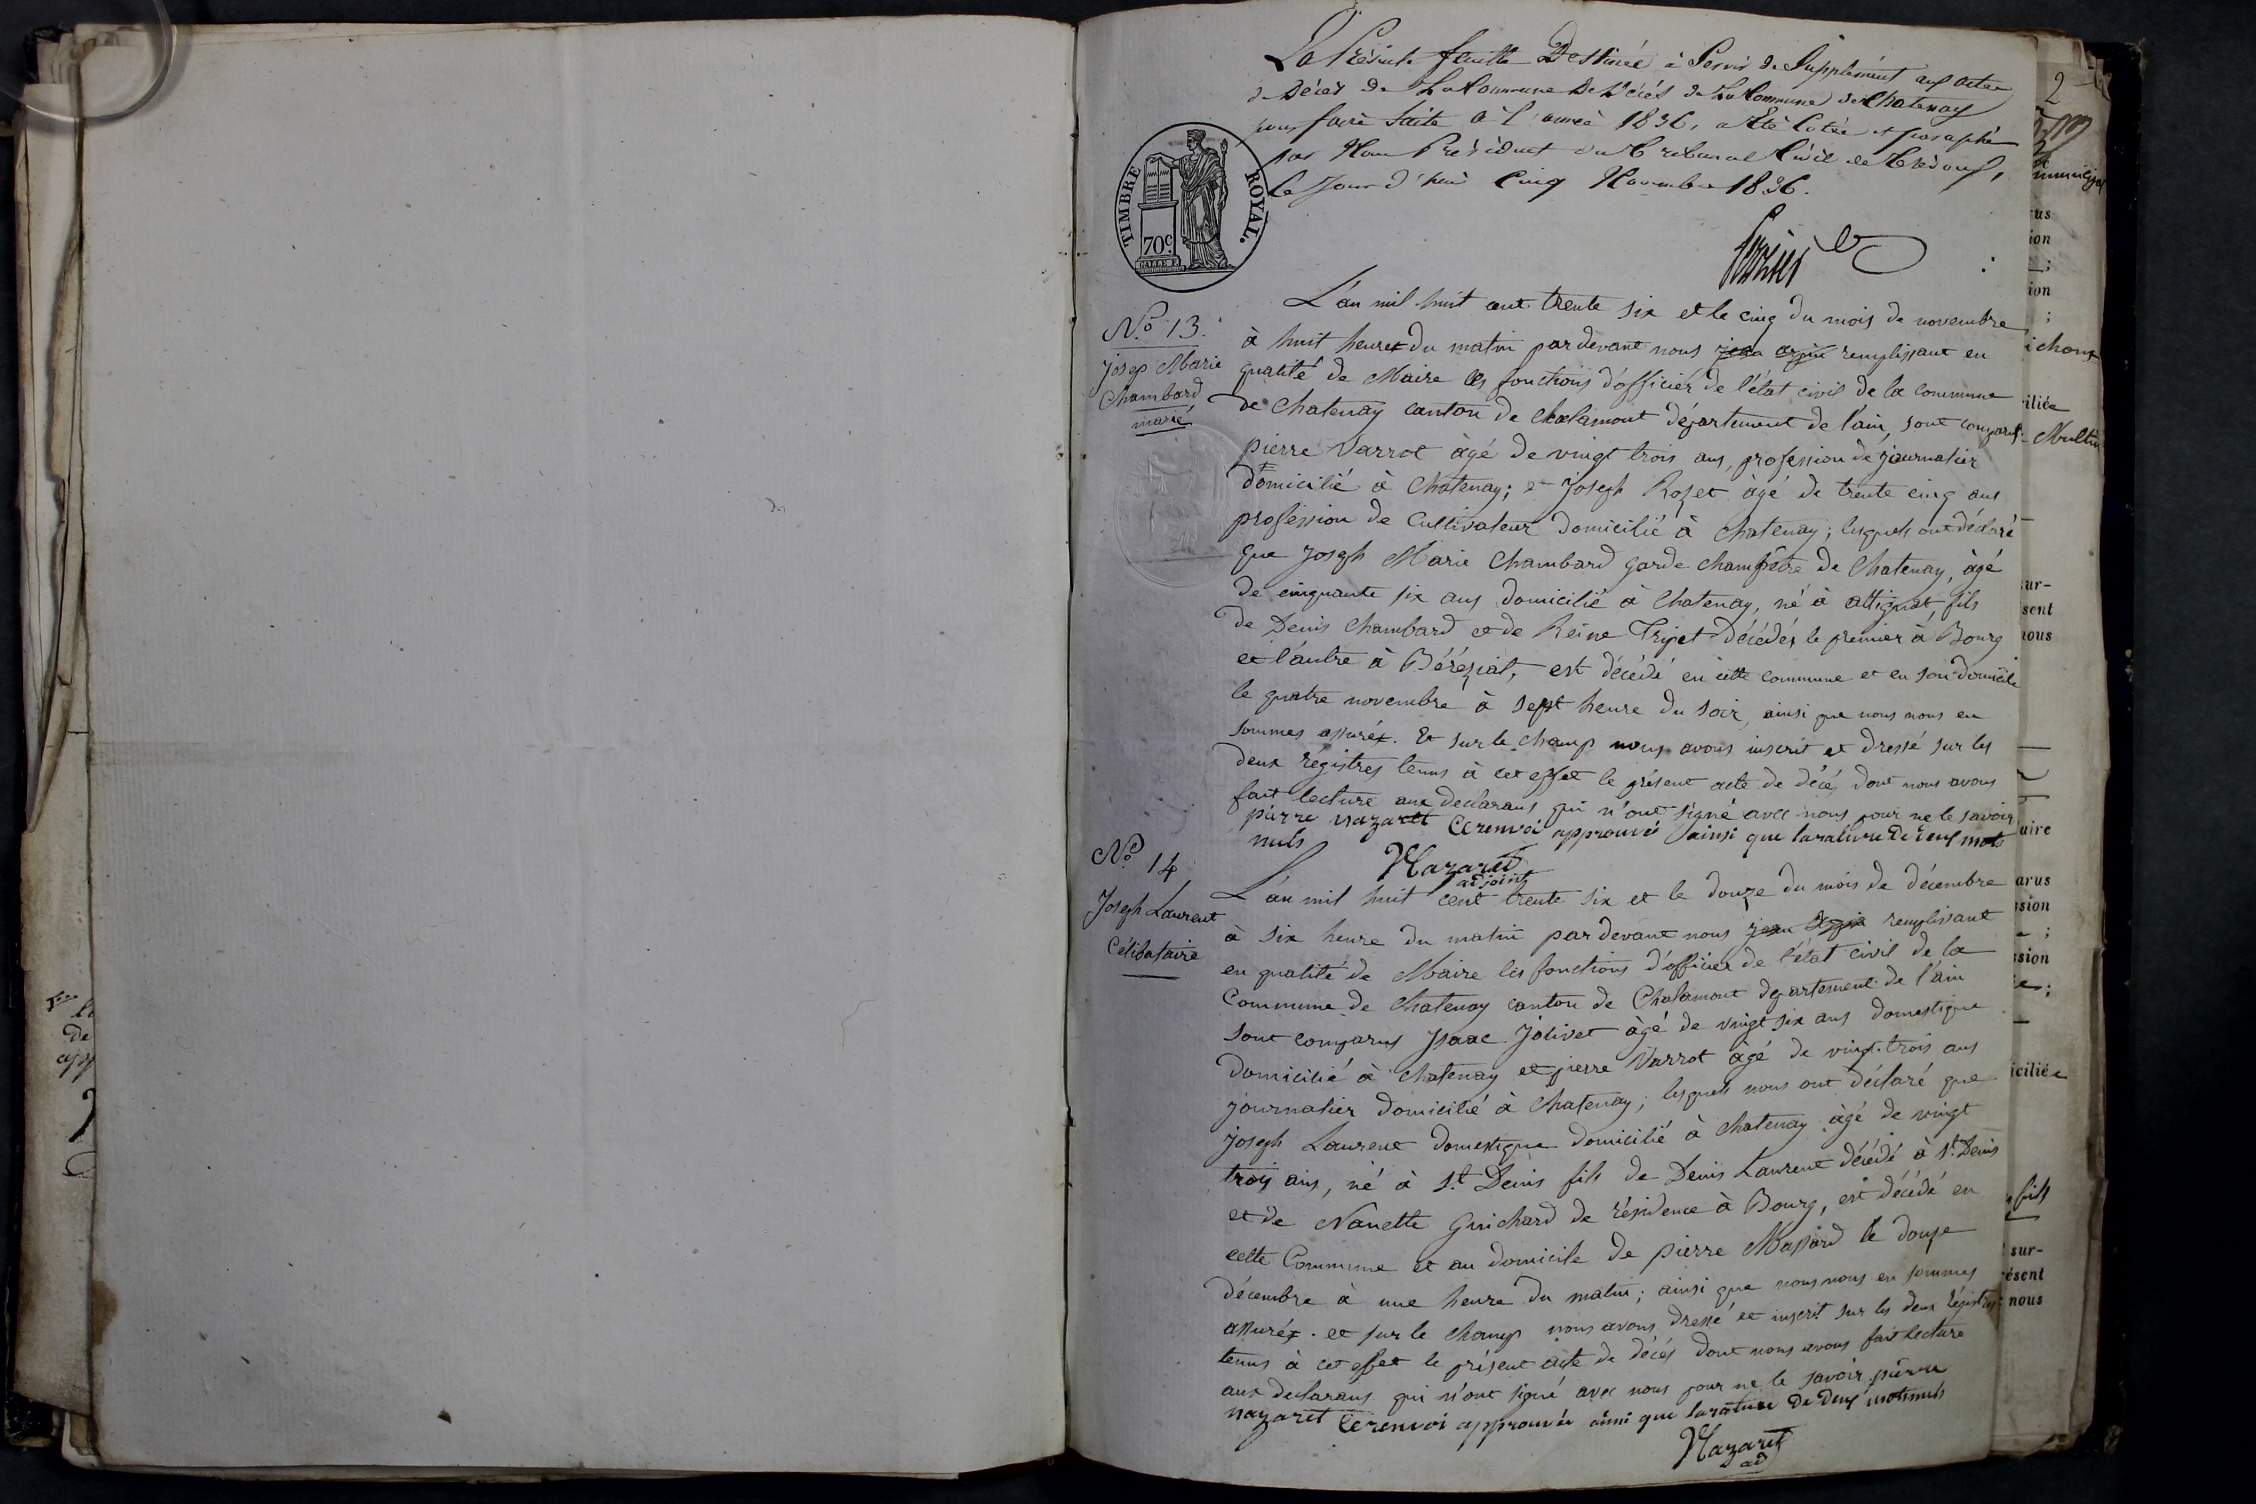 La Présente feuille Destinée à Servir de Supplément aux actes
de Décès de La Commune de Décès de La Commune de Chatenay
pour faire Suite à l'année 1836, a Eté Cotée et paraphée
par Nous Président du Tribunal Civil de Trévoux,
le Jourd'hui Cinq Novembre 1836.
TIMBRE ROYAL.
70c.
N.o 13.
Josep Marie
Chambard
marié
L'an mil huit cent trente six et le cinq du mois de novembre
à huit heures du matin pardevant nous remplissant en
qualité de Maire les fonctions d'officiér de l'état civil de la commune
de Chatenay canton de Chalamont département de l'ain, sont comparus
pierre Varrot àgé de vingt trois ans, profession de journalier
domicilié à Chatenay; et Joseph Rozet àgé de trente cinq ans
profession de Cultivateur domicilié à Chatenay; lesquels ont déclaré
que Joseph Marie Chambard garde champêtre de Chatenay, àgé
de cinquante six ans domicilié à Chatenay, né à attignat, fils
de Denis Chambard et de Reine Tripet décédés le premier à Bourg
et l'autre à Béréziat, est décédé en cette commune et en son domicile
le quatre novembre à sept heure du soir, ainsi que nous nous en
sommes assurés. Et sur le champ nous avons inscrit et dressé sur les
deux régistres tenus à cet effet le présent acte de décés, dont nous avons
fait lecture aux declarans qui n'ont signé avec nous pour ne le savoir
piérre nazaret Cerenvoi approuvés ainsi que laralure De deux mots
nuls Nazaret
adjoint
N.o 14
Joseph Laurent
Célibataire
L'an mil huit cent trente six et le douze du mois de décembre
à six heure du matin pardevant nous remplissant
en qualité de Maire les fonctions d'officier de l'état civil de la
Commune de Chatenay canton de Chalamont departement de l'ain
sont comparus Isaac Jolivet àgé de vingt six ans domestique
domicilié à Chatenay et pierre Varrot agé de vingt-trois ans
journalier domicilié à Chatenay; lesquels nous ont déclaré que
joseph Laurent domestique domicilié à Chatenay àgé de vingt
trois ans, né à St. Denis fils de Denis Laurent décédé à St. Denis
et de Nanette Guichard de résidence à Bourg, est décédé en
cette Commune et au domicile de pierre Massard le douze
décembre à une heure du matin; ainsi que nous nous en sommes
assurés. et sur le champ nous avons dressé et inscrit sur les deux régistres
tenus à cet effet le présent acte de décés dont nous avons fait lecture
aux declarans qui n'ont signé avec nous pour ne le savoir piérre
nazaret Cerenvoi approuvée ainsi que larature De deux mots nuls
Nazaret
ad